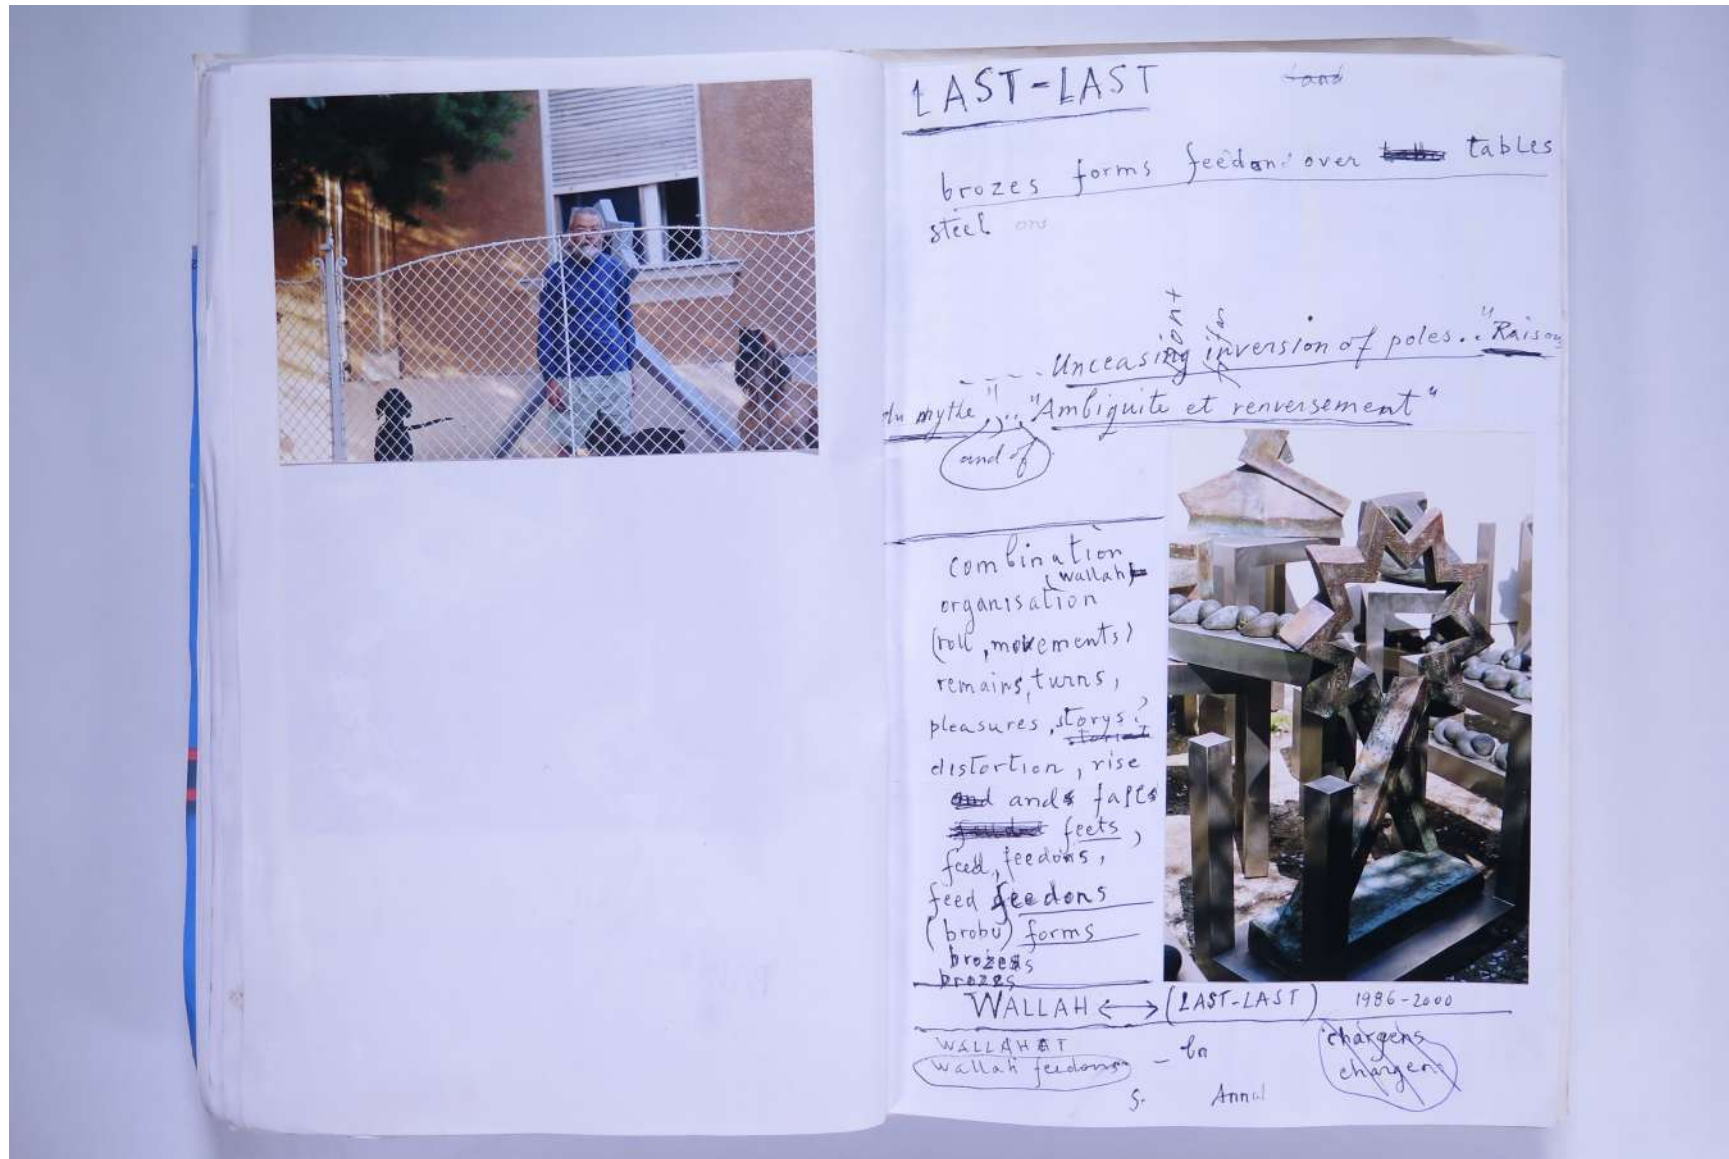 LAST-LAST
brozes forms feedons over tables
steel ons
Unceasing inversion of poles.. "Raison
du mythe",.. "Ambiguite et renversement"
and of
combination
(wallah)
organisation
(roll, movements)
remains, turns,
pleasures, storys,
distortion, rise
and falls
feets,
feed, feedons,
feed feedons
(brobu) forms
brozes
brozes
WALLAH ↔ (LAST-LAST) 1986-2000
WALLAHAT
wallah feedons
chargens
chargen